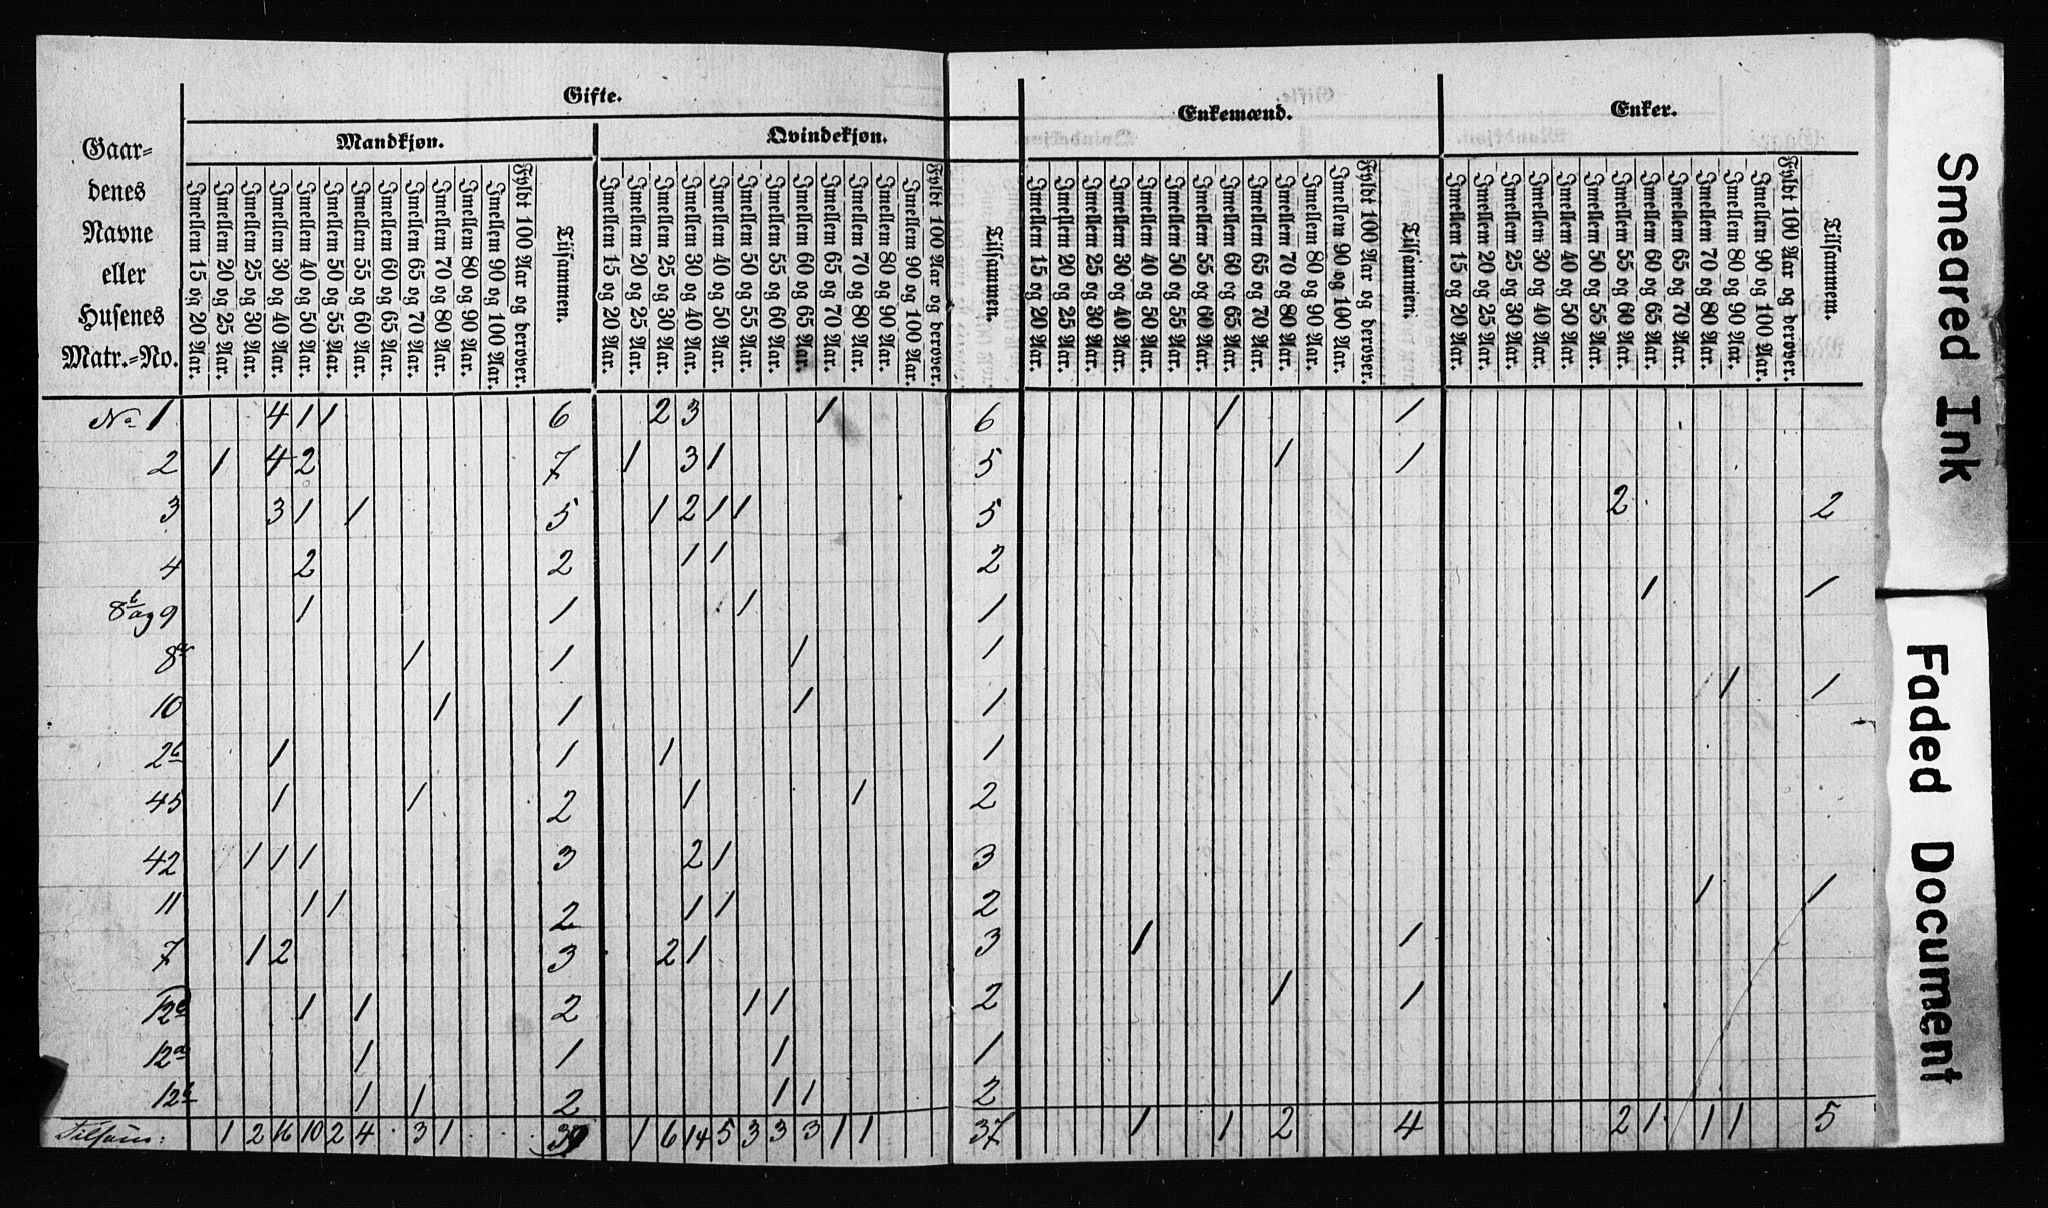 Gifte.
Enkemænd.
Enker.
Mandkjøn.
Qvindekjøn.
Gaar-
denes
Navne
eller
Husenes
Matr.-No.
Imellem 15 og 20 Aar.
Imellem 20 og 25 Aar.
Imellem 25 og 30 Aar.
Imellem 30 og 40 Aar.
Imellem 40 og 50 Aar.
Imellem 50 og 55 Aar.
Imellem 55 og 60 Aar.
Imellem 60 og 65 Aar.
Imellem 65 og 70 Aar.
Imellem 70 og 80 Aar.
Imellem 80 og 90 Aar.
Imellem 90 og 100 Aar.
Fyldt 100 Aar og derover.
Tilsammen.
Imellem 15 og 20 Aar.
Imellem 20 og 25 Aar.
Imellem 25 og 30 Aar.
Imellem 30 og 40 Aar.
Imellem 40 og 50 Aar.
Imellem 50 og 55 Aar.
Imellem 55 og 60 Aar.
Imellem 60 og 65 Aar.
Imellem 65 og 70 Aar.
Imellem 70 og 80 Aar.
Imellem 80 og 90 Aar.
Imellem 90 og 100 Aar.
Fyldt 100 Aar og derover.
Tilsammen.
Imellem 15 og 20 Aar.
Imellem 20 og 25 Aar.
Imellem 25 og 30 Aar.
Imellem 30 og 40 Aar.
Imellem 40 og 50 Aar.
Imellem 50 og 55 Aar.
Imellem 55 og 60 Aar.
Imellem 60 og 65 Aar.
Imellem 65 og 70 Aar.
Imellem 70 og 80 Aar.
Imellem 80 og 90 Aar.
Imellem 90 og 100 Aar.
Fyldt 100 Aar og derover.
Tilsammen.
Imellem 15 og 20 Aar.
Imellem 20 og 25 Aar.
Imellem 25 og 30 Aar.
Imellem 30 og 40 Aar.
Imellem 40 og 50 Aar.
Imellem 50 og 55 Aar.
Imellem 55 og 60 Aar.
Imellem 60 og 65 Aar.
Imellem 65 og 70 Aar.
Imellem 70 og 80 Aar.
Imellem 80 og 90 Aar.
Imellem 90 og 100 Aar.
Fyldt 100 Aar og derover.
Tilsammen.
No 1 4 1 1 6 2 3 1 6 1 1
2 1 4 2 7 1 3 1 5 1 1
3 3 1 1 5 1 2 1 1 5 2 2
4 2 2 1 1 2
8b og 9 1 1 1 1 1 1
8a 1 1 1 1
10 1 1 1 1 1 1
2b 1 1 1 1
45 1 1 2 1 1 2
42 1 1 1 3 2 1 3
11 1 1 2 1 1 2 1 1
7 1 2 3 2 1 3 1 1
12c 1 1 2 1 1 2 1 1
12a 1 1 1 1
12b 1 1 2 1 1 2
Tilsam: 1 2 16 10 2 4 3 1 39 1 6 14 5 3 3 3 1 1 37 1 1 2 4 2 1 1 1 5
Smeared Ink
Faded Document